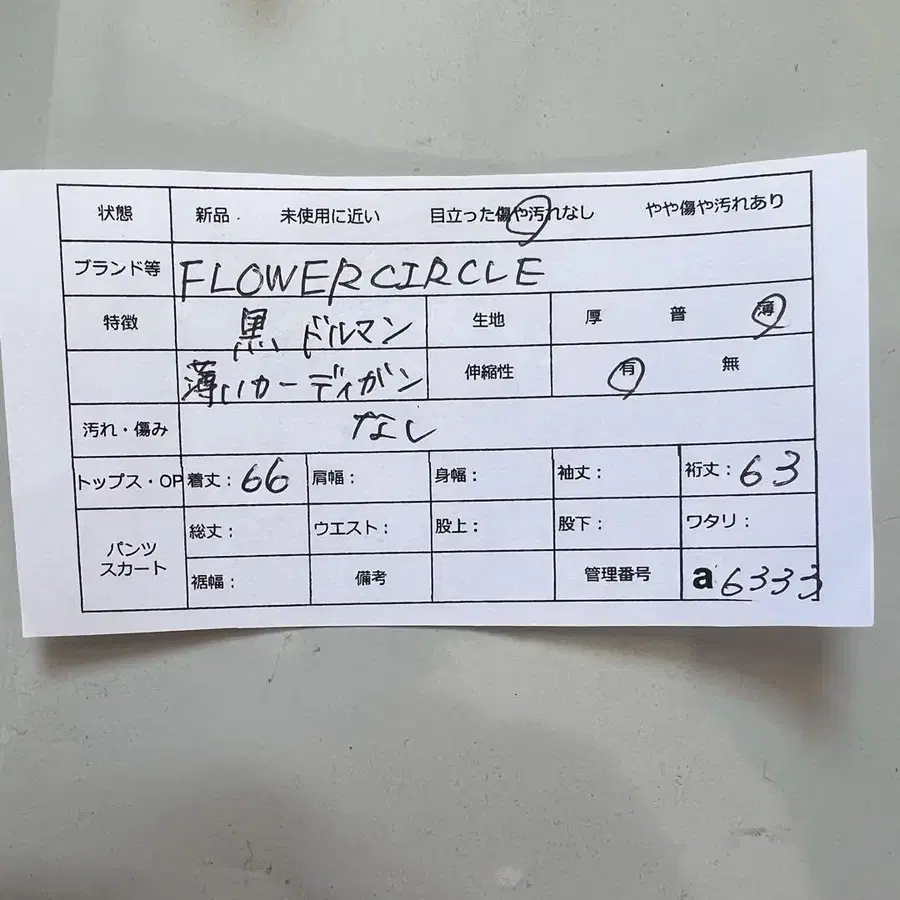 状態 新品 ・ 未使用に近い 目立った傷や汚れなし やや傷や汚れあり
ブランド等 FLOWERCIRCLE
特徴 黒 ドルマン 生地 厚 普 薄
薄いカーディガン 伸縮性 有 無
汚れ・傷み なし
トップス・OP 着丈：66 肩幅： 身幅： 袖丈： 裄丈：63
パンツ スカート
総丈： ウエスト： 股上： 股下： ワタリ：
裾幅： 備考 管理番号 a6333